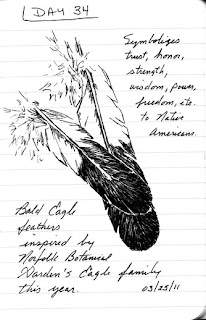 DAY 34
Symbolizes
trust, honor,
strength,
wisdom, power,
freedom, etc.
to Native
Americans.
Bald Eagle
feathers
inspired by
Norfolk Botanical
Garden's Eagle family
this year.
03/25/11